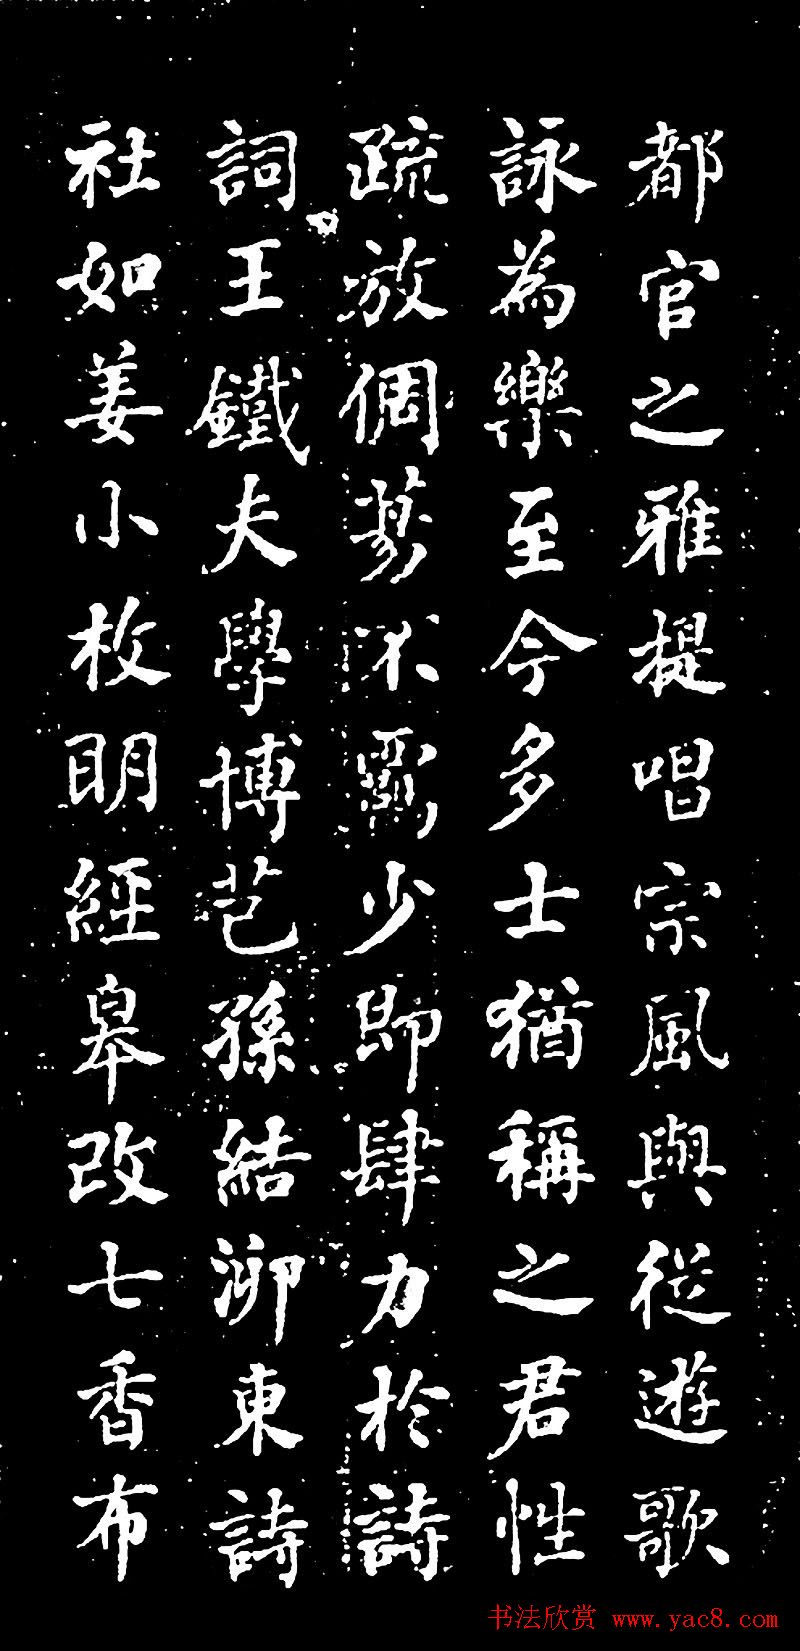 都官之雅提唱宗風與從遊歌
詠為樂至今多士猶稱之君性
疏放倜募不羈少即肆力於詩
詞王鐵夫學博芑孫結泖東詩
社如姜小枚明經皋改七香布
书法欣赏 www.yac8.com